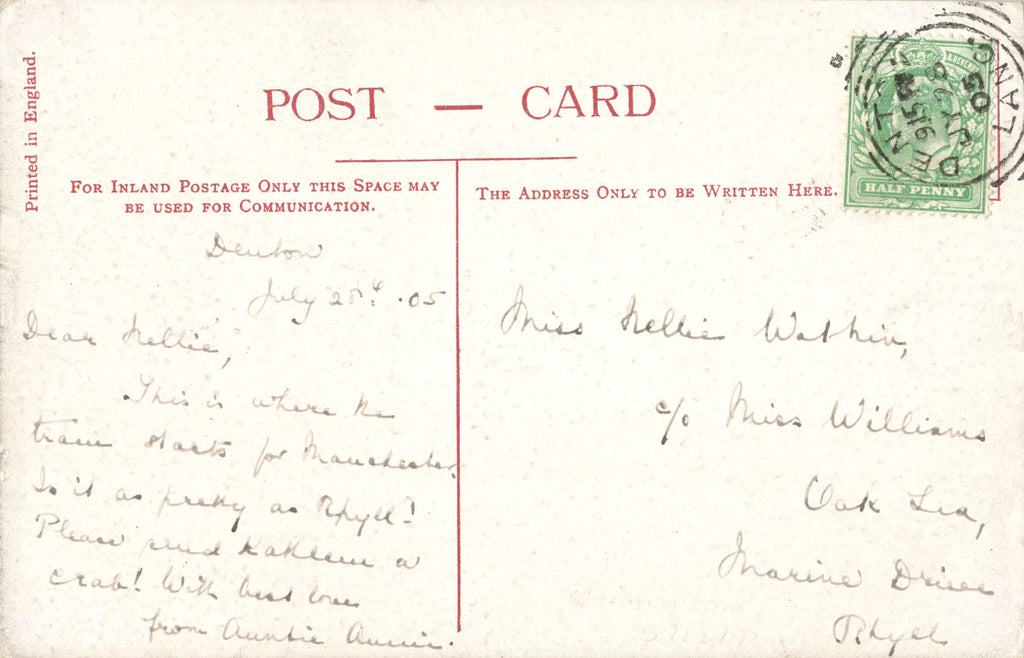 Printed in England.
POST — CARD
FOR INLAND POSTAGE ONLY THIS SPACE MAY
BE USED FOR COMMUNICATION.
THE ADDRESS ONLY TO BE WRITTEN HERE.
HALF PENNY
DENTON LANC
9.15 PM
JY 28
05
Denton
July 28th .05
Dear Nellie,
This is where the
tram starts for Manchester.
Is it as pretty as Rhyl?
Please send Kathleen a
crab! With best love
from Auntie Annie.
Miss Nellie Watkin,
c/o Miss Williams
Oak Lea,
Marine Drive
Rhyl